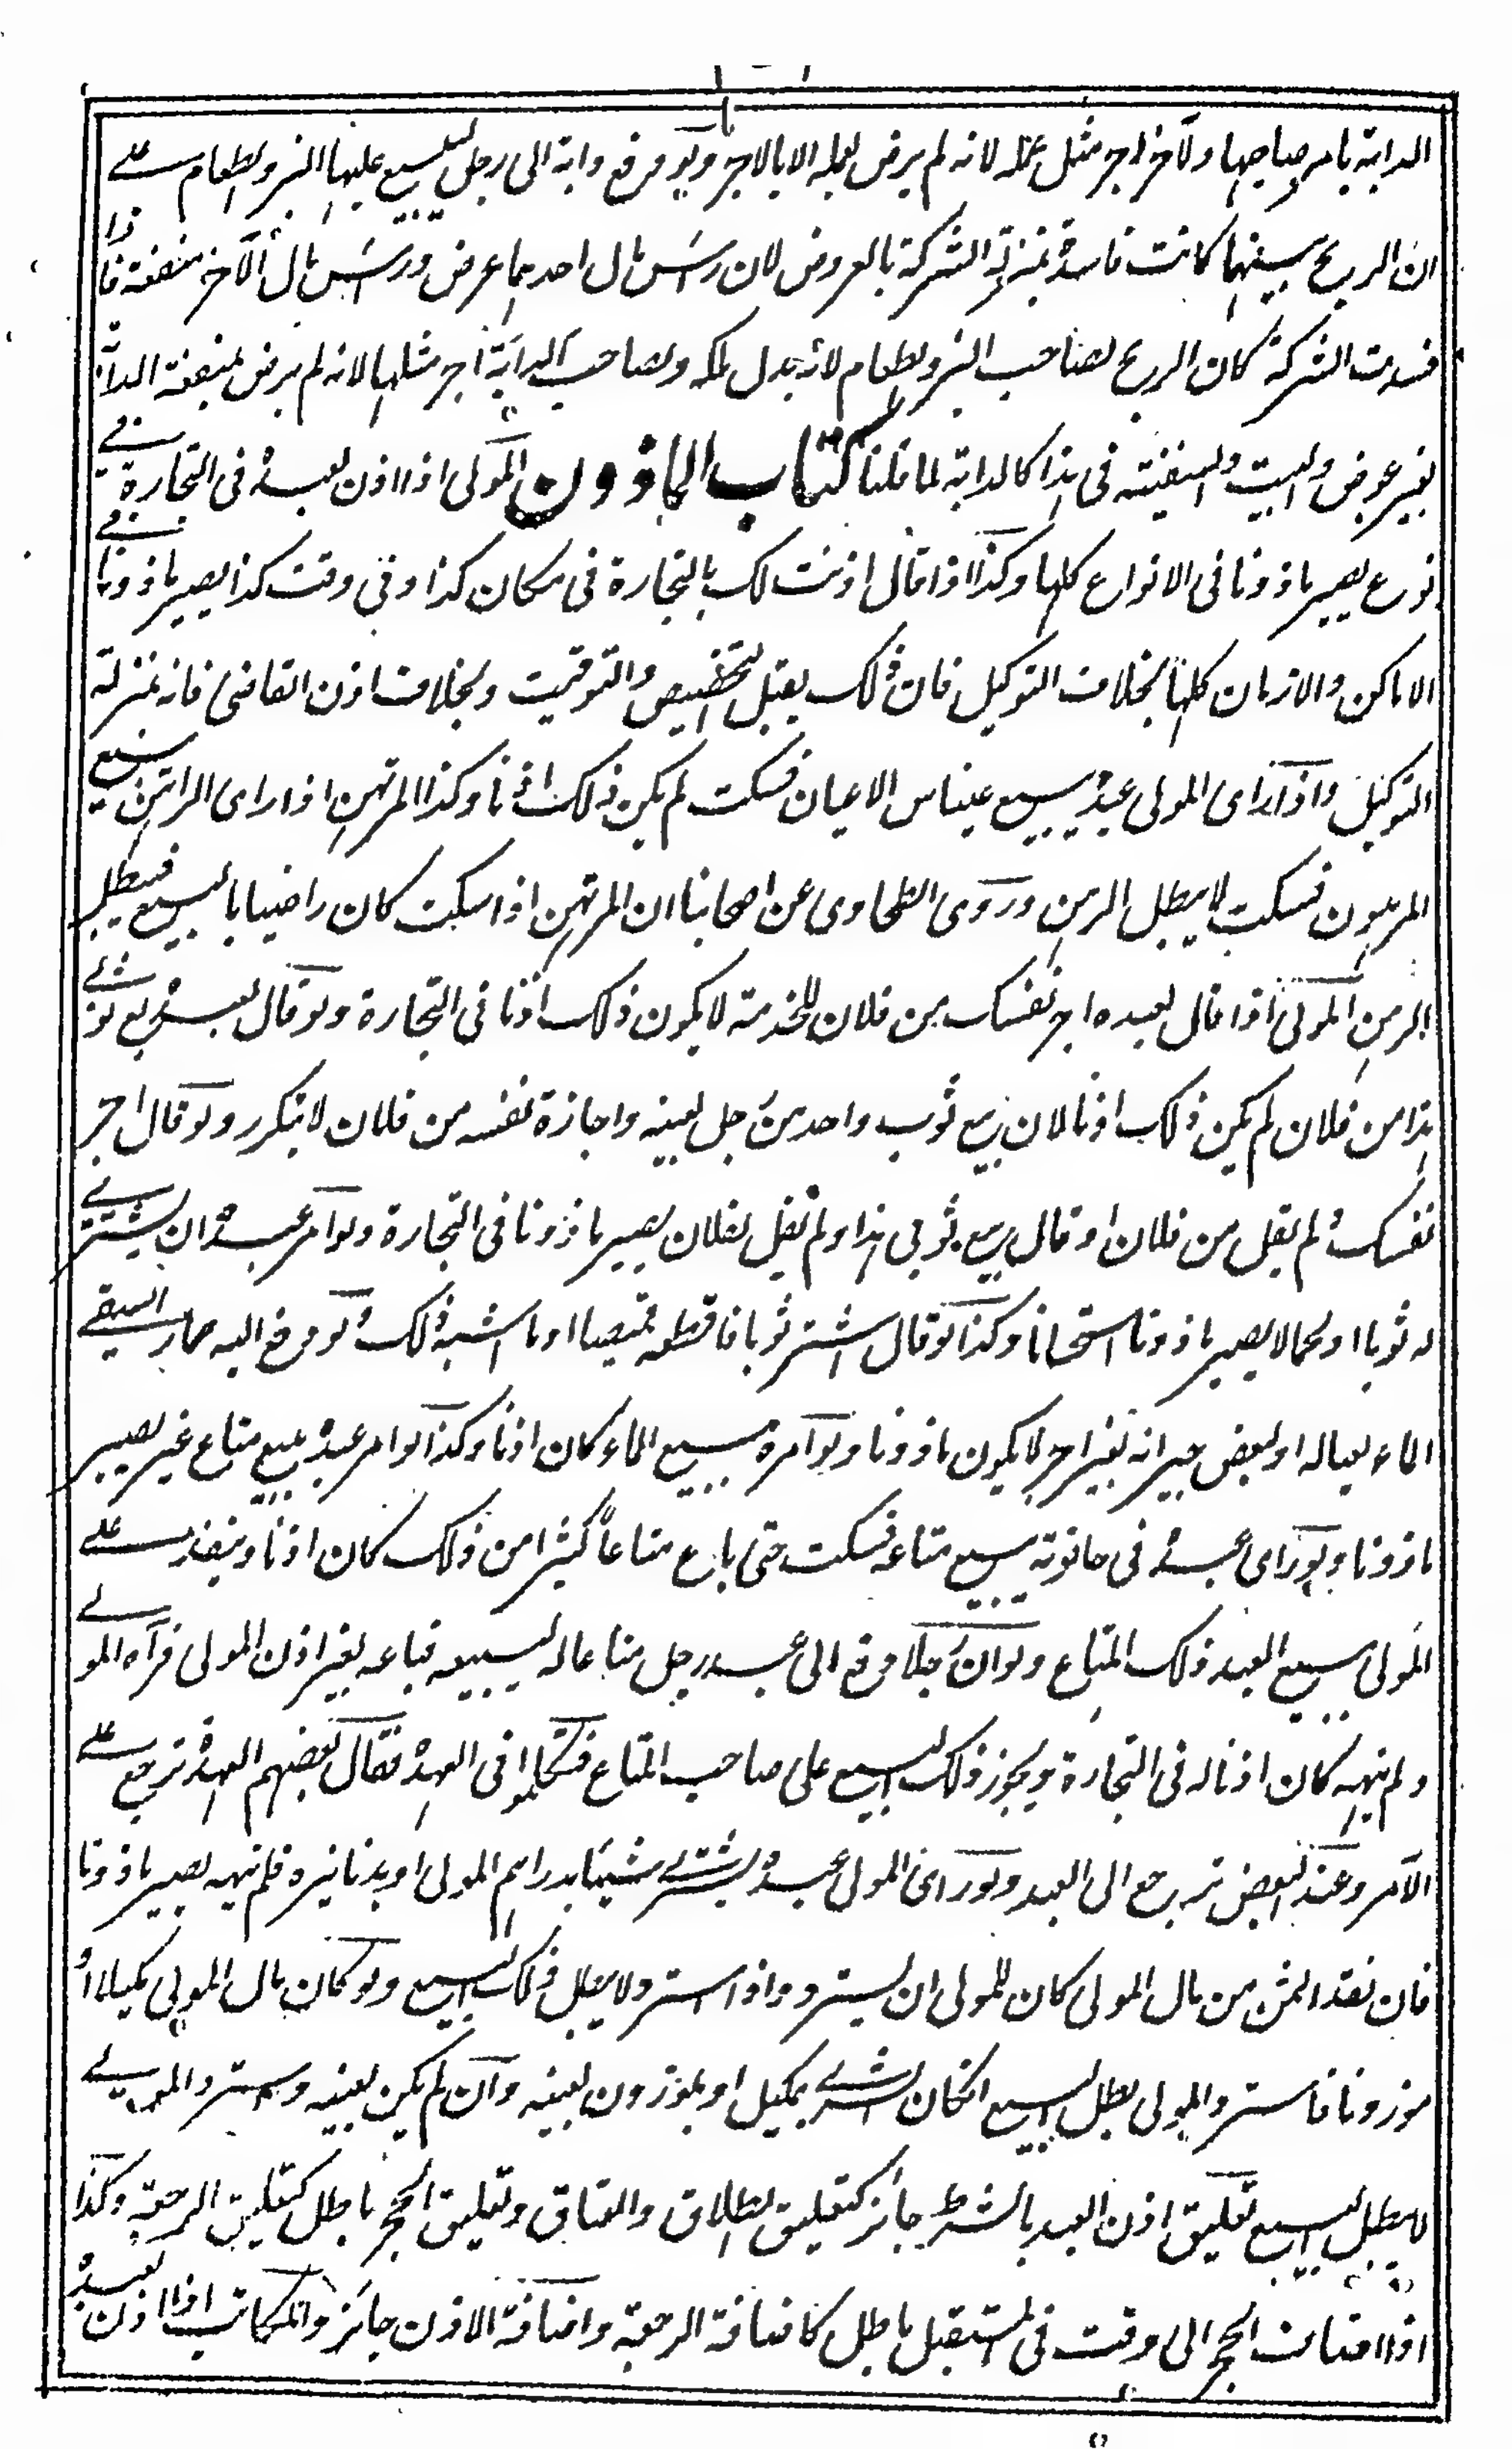 الدابة بامر صاحبها ولآخر اجر مثل عمله لانه لم يرض بعمله الا بالاجر ولو دفع دابة الى رجل ليبيع عليها البز والطعام على
ان الربح بينهما كانت فاسدة بمنزلة الشركة بالعروض لان رأس مال احدهما عرض ورأس مال الآخر منفعة فاذا
فسدت الشركة كان الربح لصاحب البز والطعام لانه بدل ملكه ولصاحب الدابة اجر مثلها لانه لم يرض بمنفعة الدابة
بغير عوض والبيت والسفينة فى هذا كالدابة لما قلنا كتاب الماذون المولى اذا اذن لعبده فى التجارة فى
نوع يصير ماذونا فى الانواع كلها وكذا اذا قال اذنت لك بالتجارة فى مكان كذا وفى وقت كذا يصير ماذونا فى
الاماكن والازمان كلها بخلاف التوكيل فان ذلك يقبل التخصيص والتوقيت وبخلاف اذن القاضى فانه بمنزلة
التوكيل واذا رأى المولى عبده يبيع عينا من الاعيان فسكت لم يكن ذلك اذنا وكذا المرتهن اذا رأى الراهن يبيع
المرهون فسكت لا يبطل الرهن وروى الطحاوى عن اصحابنا ان المرتهن اذا سكت كان راضيا بالبيع فيبطل
الرهن المولى اذا قال لعبده اجر نفسك من فلان للخدمة لا يكون ذلك اذنا فى التجارة ولو قال لعبده بع ثوبى
هذا من فلان لم يكن ذلك اذنا لان بيع ثوب واحد من رجل بعينه واجازة نفسه من فلان لا يتكرر ولو قال اجر
نفسك ولم يقل من فلان او قال بع ثوبى هذا ولم يقل لفلان يصير ماذونا فى التجارة ولو امر عبده ان يشترى
له ثوبا او لحما لا يصير ماذونا استحسانا وكذا لو قال اشتر ثوبا فاقطعه قميصا او ما اشبه ذلك ولو دفع اليه حمارا ليسقى
الماء لعياله او لبعض جيرانه بغير اجر لا يكون ماذونا ولو امره ببيع الماء كان اذنا وكذا لو امر عبده ببيع متاع غيره يصير
ماذونا ولو رأى عبده فى حانوته يبيع متاعه فسكت حتى باع متاعا كثيرا من ذلك كان اذنا وينفذ على
المولى بيع العبد ذلك المتاع ولو ان رجلا دفع الى عبد رجل متاعا له ليبيعه فباعه بغير اذن المولى فرآه المولى
ولم ينهه كان اذنا له فى التجارة ويجوز ذلك البيع على صاحب المتاع فتكلموا فى العهدة فقال بعضهم العهدة ترجع على
الآمر وعند البعض ترجع الى العبد ولو رأى المولى عبده يشترى شيئا بدراهم المولى او بدنانيره فلم ينهه يصير ماذونا
فان نقد الثمن من مال المولى كان للمولى ان يسترد واذا استرد لا يبطل ذلك البيع ولو كان مال المولى مكيلا او
موزونا فاسترد المولى بطل البيع انكان الشرى بمكيل او بموزون بعينه وان لم يكن بعينه واسترد المولى
لا يبطل البيع تعليق اذن العبد بالشرط جائز كتعليق الطلاق والعتاق وتعليق الحجر باطل كتعليق الرجعة وكذا
اذا اضاف الحجر الى وقت فى المستقبل باطل كاضافة الرجعة واضافة الاذن جائز والمكاتب اذا اذن لعبده